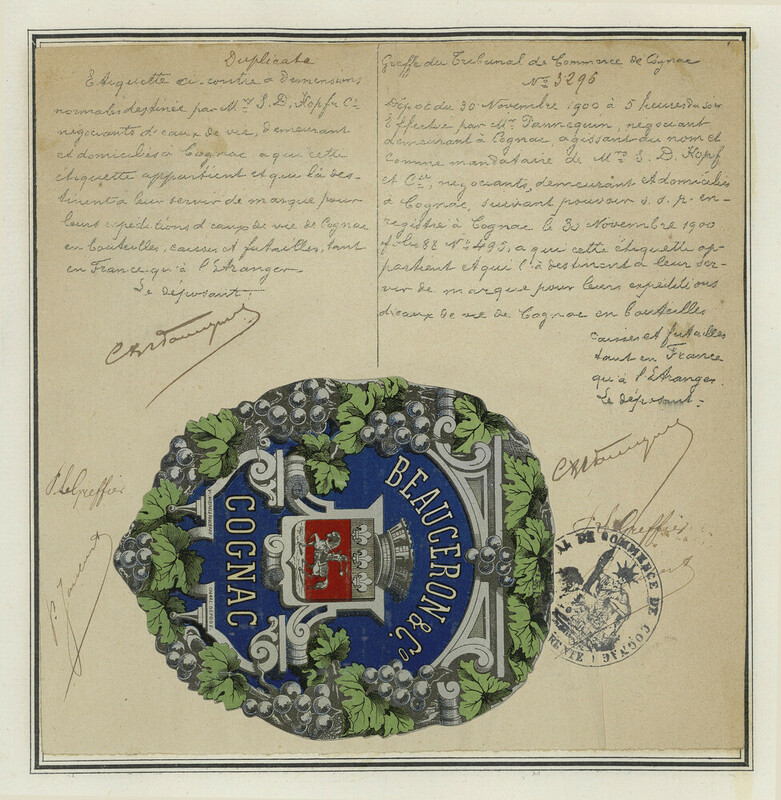 Duplicata
Etiquette ci-contre à dimensions
normales destinée par Mrs S. D. Kopf & Cie
négociants d'eaux de vie, demeurant
et domiciliés à Cognac a qui cette
etiquette appartient et qui l'à des-
tinent à leur servir de marque pour
leurs expéditions d'eaux de vie de Cognac
en bouteilles, caisses et futailles, tant
en France qu'à l'Etranger
Le déposant:
P. Le Greffier
Greffe du Tribunal de Commerce de Cognac
No 3296
Dépot du 30 Novembre 1900 à 5 heures du soir
Effectué par Mr Pannequin, négociant
demeurant à Cognac, agissant au nom et
comme mandataire de Mrs S. D. Kopf
et Cie, négociants, demeurant et domiciliés
à Cognac, suivant pouvoir s. s. p. en-
registré à Cognac le 30 Novembre 1900
No 495, a qui cette étiquette ap-
partient et qui l'à destinent à leur ser-
vir de marque pour leurs expéditions
d'eaux de vie de Cognac en bouteilles
caisses et futailles
tant en France
qu'à l'Etranger.
Le déposant:
Le Greffier
BEAUCERON & Co
COGNAC
AL DE COMMERCE DE COGNAC